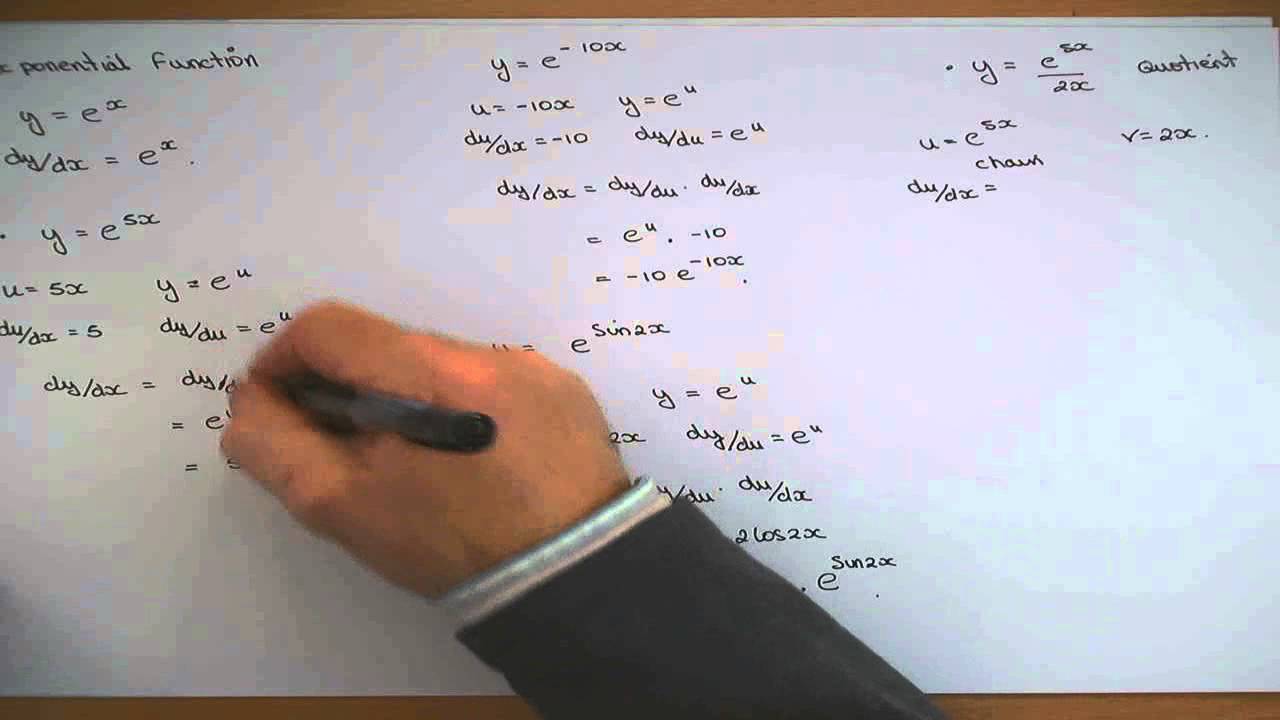 ponential Function
y = eˣ
dy/dx = eˣ.
• y = e⁵ˣ
u = 5x y = eᵘ
du/dx = 5 dy/du = eᵘ
dy/dx = dy/d
= e
= 5
y = e⁻¹⁰ˣ
u = -10x y = eᵘ
du/dx = -10 dy/du = eᵘ
dy/dx = dy/du · du/dx
= eᵘ . -10
= -10 e⁻¹⁰ˣ.
= e^sin2x
y = eᵘ
2x dy/du = eᵘ
y/du · du/dx
2cos2x
. e^sin2x.
• y = e⁵ˣ/2x Quotient
u = e⁵ˣ v = 2x.
chain
du/dx =